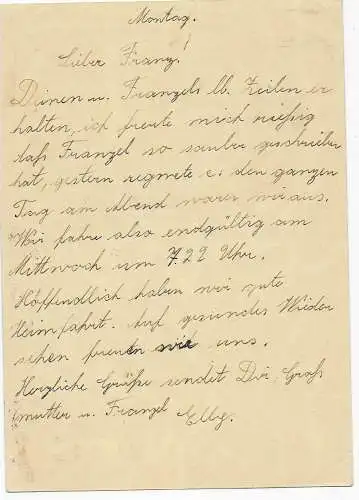 Montag.
Lieber Franz!
Deinen u. Franzels lb. Zeilen er
halten, ich freute mich rießig
daß Franzel so sauber geschrieben
hat, gestern regnete e. den ganzen
Tag am Abend waren wir aus.
Wir fahre also endgültig am
Mittwoch um 7.22 Uhr.
Hoffendlich haben wir gute
Heimfahrt. Auf gesundes Wieder
sehen freuen wir uns.
Herzliche Grüße sendet Dir, Groß
mutter u. Franzel Elly.